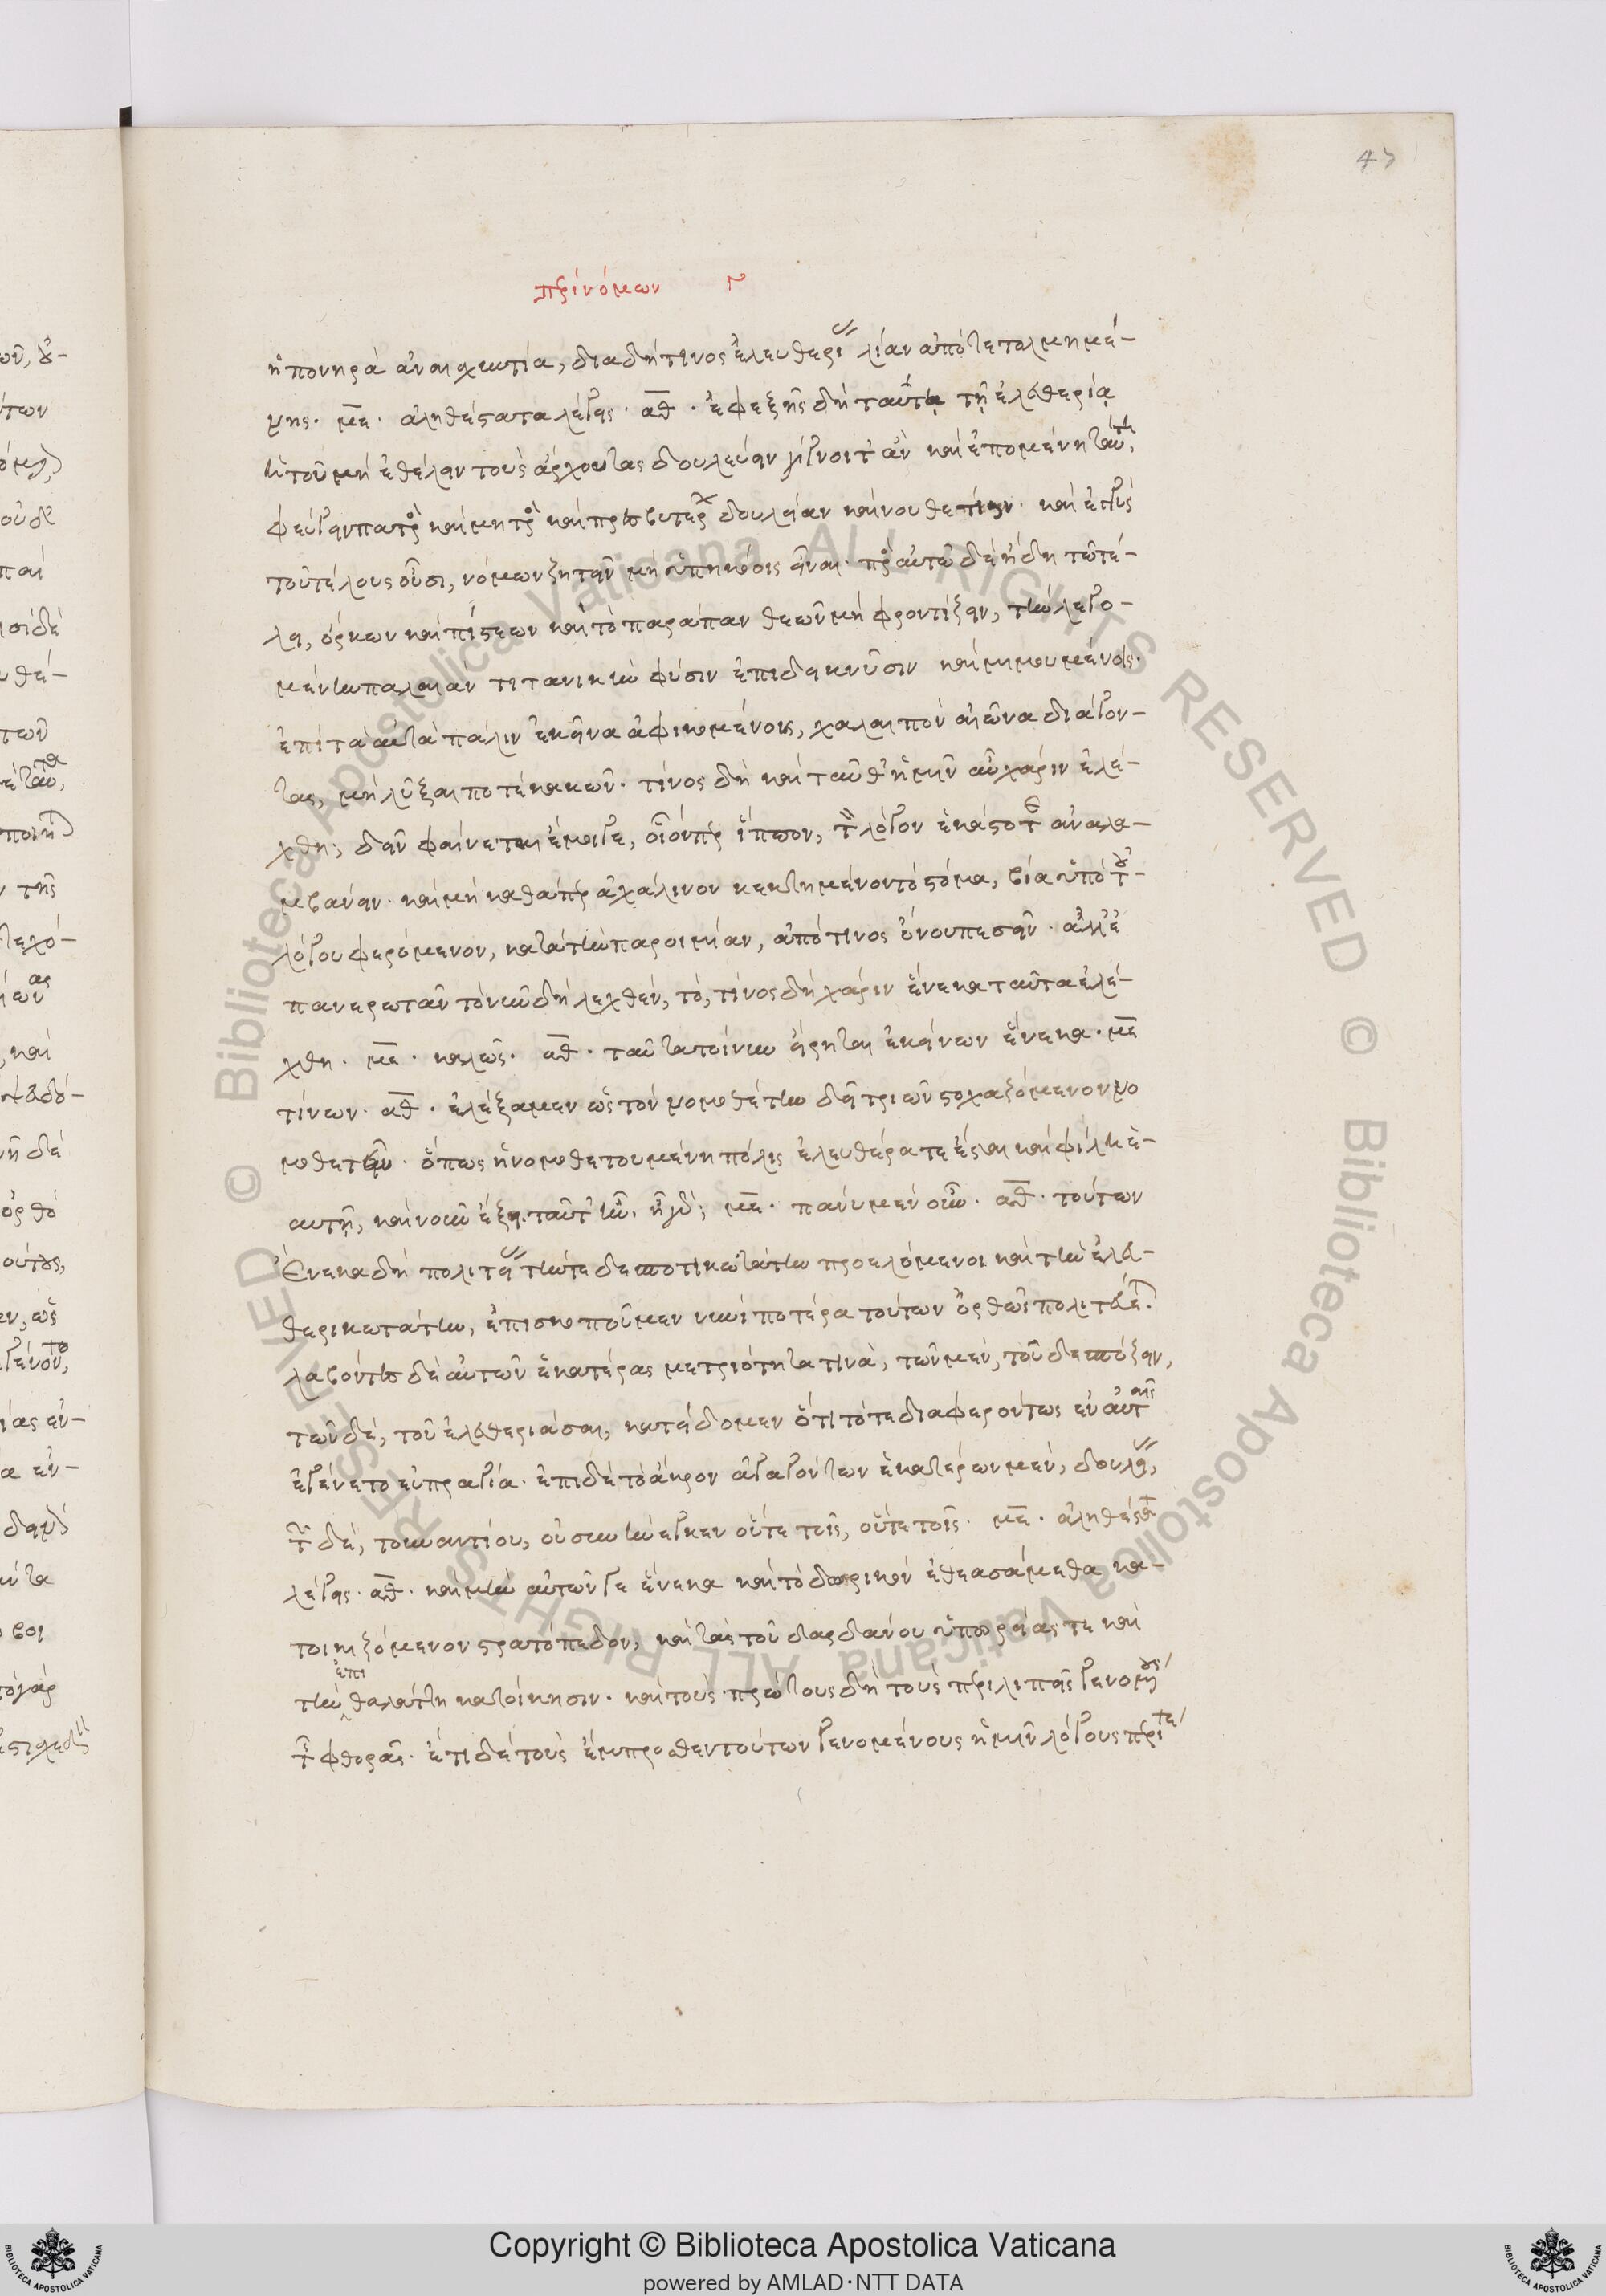 47
περὶ νόμων γ
ἡ πονηρὰ ἀναισχυντία, διὰ δή τινος ἐλευθερίας λίαν ἀποτετολμημέ-
νης. με. ἀληθέστατα λέγεις. αθ. ἐφεξῆς δὴ ταύτῃ τῇ ἐλευθερίᾳ
ἡ τοῦ μὴ ἐθέλειν τοῖς ἄρχουσι δουλεύειν γίγνοιτ' ἂν καὶ ἑπομένη ταύτῃ,
φεύγειν πατρὸς καὶ μητρὸς καὶ πρεσβυτέρων δουλείαν καὶ νουθέτησιν. καὶ ἐγγὺς
τοῦ τέλους οὖσι, νόμων ζητεῖν μὴ ὑπηκόοις εἶναι. πρὸς αὐτῷ δὲ ἤδη τῷ τέ-
λει, ὅρκων καὶ πίστεων καὶ τὸ παράπαν θεῶν μὴ φροντίζειν, τὴν λεγο-
μένην παλαιὰν τιτανικὴν φύσιν ἐπιδεικνῦσιν καὶ μιμουμένοις.
ἐπὶ τὰ αὐτὰ πάλιν ἐκεῖνα ἀφικομένοις, χαλεπὸν αἰῶνα διάγον-
τας, μὴ λῆξαι ποτὲ κακῶν. τίνος δὴ καὶ ταῦθ' ἡμῖν αὖ χάριν ἐλέ-
χθη; δεῖν φαίνεται ἔμοιγε, οἷόνπερ ἵππον, τὸν λόγον ἑκάστοτε ἀναλα-
μβάνειν. καὶ μὴ καθάπερ ἀχάλινον κεκτημένον τὸ στόμα, βίᾳ ὑπὸ τοῦ
λόγου φερόμενον, κατὰ τὴν παροιμίαν, ἀπό τινος ὄνου πεσεῖν. ἀλλ' ἐ
πανερωτᾶν τὸ νῦν δὴ λεχθέν, τό, τίνος δὴ χάριν ἕνεκα ταῦτα ἐλέ-
χθη. με. καλῶς. αθ. ταῦτα τοίνυν εἴρηται ἐκείνων ἕνεκα. με
τίνων. αθ. ἐλέξαμεν ὡς τὸν νομοθέτην δεῖ τριῶν στοχαζόμενον νο
μοθετεῖν. ὅπως ἡ νομοθετουμένη πόλις ἐλευθέρα τε ἔσται καὶ φίλη ἑ-
αυτῇ, καὶ νοῦν ἕξει. ταῦτ' ἦν. ἦ γάρ; με. πάνυ μὲν οὖν. αθ. τούτων
ἕνεκα δὴ πολιτείας τήν τε δεσποτικωτάτην προελόμενοι καὶ τὴν ἐλευ-
θερικωτάτην, ἐπισκοποῦμεν νυνὶ ποτέρα τούτων ὀρθῶς πολιτεύεται.
λαβόντες δὲ αὐτῶν ἑκατέρας μετριότητά τινα, τῶν μέν, τοῦ δεσπόζειν,
τῶν δέ, τοῦ ἐλευθεριάσαι, κατείδομεν ὅτι τότε διαφερόντως ἐν αὐταῖς
ἐγένετο εὐπραγία. ἐπὶ δὲ τὸ ἄκρον ἀγαγόντων ἑκατέρων μέν, δουλείας,
τῶν δέ, τοὐναντίου, οὐ συνήνεγκεν οὔτε τοῖς, οὔτε τοῖς. με. ἀληθέστατα
λέγεις. αθ. καὶ μὴν αὐτῶν γε ἕνεκα καὶ τὸ δωρικὸν ἐθεασάμεθα κα-
τοικιζόμενον στρατόπεδον, καὶ τὰς τοῦ δαρδάνου ὑπωρείας τε καὶ
τὴν ἐπὶ θαλάττῃ κατοίκησιν. καὶ τοὺς πρώτους δὴ τοὺς περιλιπεῖς γενομένους
τῆς φθορᾶς. ἔτι δὲ τοὺς ἔμπροσθεν τούτων γενομένους ἡμῖν λόγους περί τε
Copyright © Biblioteca Apostolica Vaticana
powered by AMLAD·NTT DATA